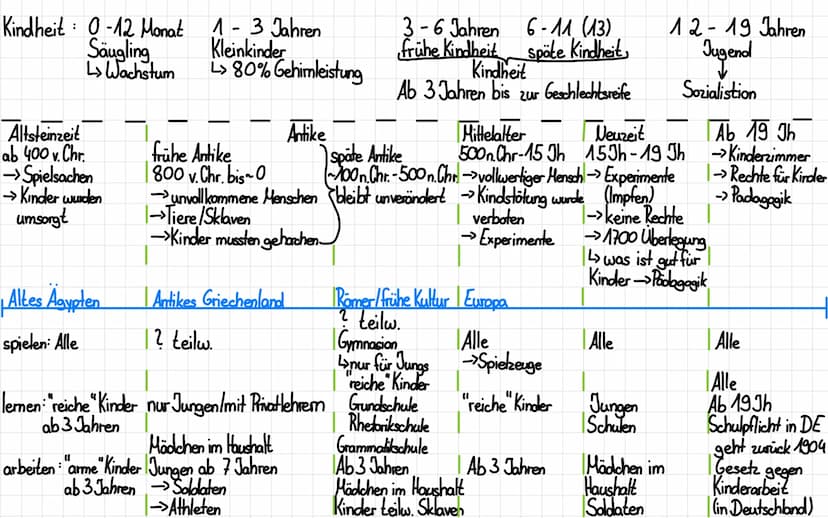 Kindheit : 0-12 Monat 1 - 3 Jahren 3 - 6 Jahren 6 - 11 (13) 12 - 19 Jahren
Säugling Kleinkinder frühe Kindheit späte Kindheit Jugend
↳ Wachstum ↳ 80% Gehirnleistung Kindheit ↓
Ab 3 Jahren bis zur Geschlechtsreife Sozialistion
Altsteinzeit
ab 400 v. Chr.
→ Spielsachen
→ Kinder wurden
umsorgt
Antike
frühe Antike
800 v. Chr. bis ~0
→ unvollkommene Menschen
→ Tiere/Sklaven
→ Kinder mussten gehorchen
späte Antike
~100 n. Chr. - 500 n. Chr.
bleibt unverändert
Mittelalter
500 n. Chr - 15 Jh
→ vollwertiger Mensch
→ Kindstötung wurde
verboten
→ Experimente
Neuzeit
15 Jh - 19 Jh
→ Experimente
(Impfen)
→ keine Rechte
→ 1700 Überlegung
↳ was ist gut für
Kinder → Pädagogik
Ab 19 Jh
→ Kinderzimmer
→ Rechte für Kinder
→ Pädagogik
Altes Ägypten Antikes Griechenland Römer/frühe Kultur Europa
spielen: Alle
? teilw.
? teilw.
Gymnasion
↳ nur für Jungs
Alle
→ Spielzeuge
Alle
Alle
lernen: "reiche" Kinder
ab 3 Jahren
nur Jungen/mit Privatlehrern
"reiche" Kinder
Grundschule
Rhetorikschule
Grammatikschule
"reiche" Kinder
Jungen
Schulen
Alle
Ab 19 Jh
Schulpflicht in DE
geht zurück 1904
arbeiten: "arme" Kinder
ab 3 Jahren
Mädchen im Haushalt
Jungen ab 7 Jahren
→ Soldaten
→ Athleten
Ab 3 Jahren
Mädchen im Haushalt
Kinder teilw. Sklaven
Ab 3 Jahren
Mädchen im
Haushalt
Soldaten
Gesetz gegen
Kinderarbeit
(in Deutschland)